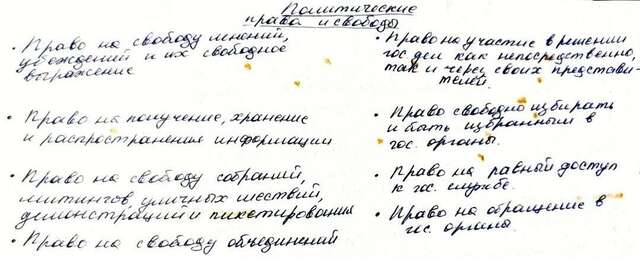 Политические
права и свободы
• Право на свободу мнений,
убеждений и их свободное
выражение
• Право на получение, хранение
и распространения информации
• Право на свободу собраний,
митингов, уличных шествий,
демонстраций и пикетирования
• Право на свободу объединений
• Право на участие в решении
гос дел как непосредственно,
так и через своих представи-
телей.
• Право свободно избирать
и быть избранным в
гос. органы.
• Право на равный доступ
к гос. службе.
• Право на обращение в
гос. органы